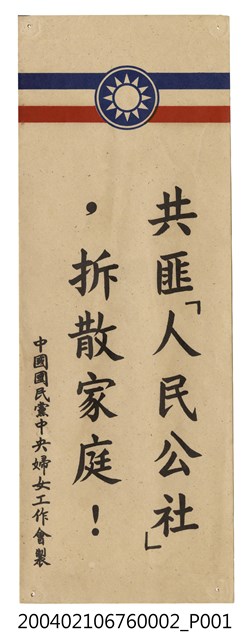 共匪「人民公社」
，拆散家庭！
中國國民黨中央婦女工作會製
200402106760002_P001